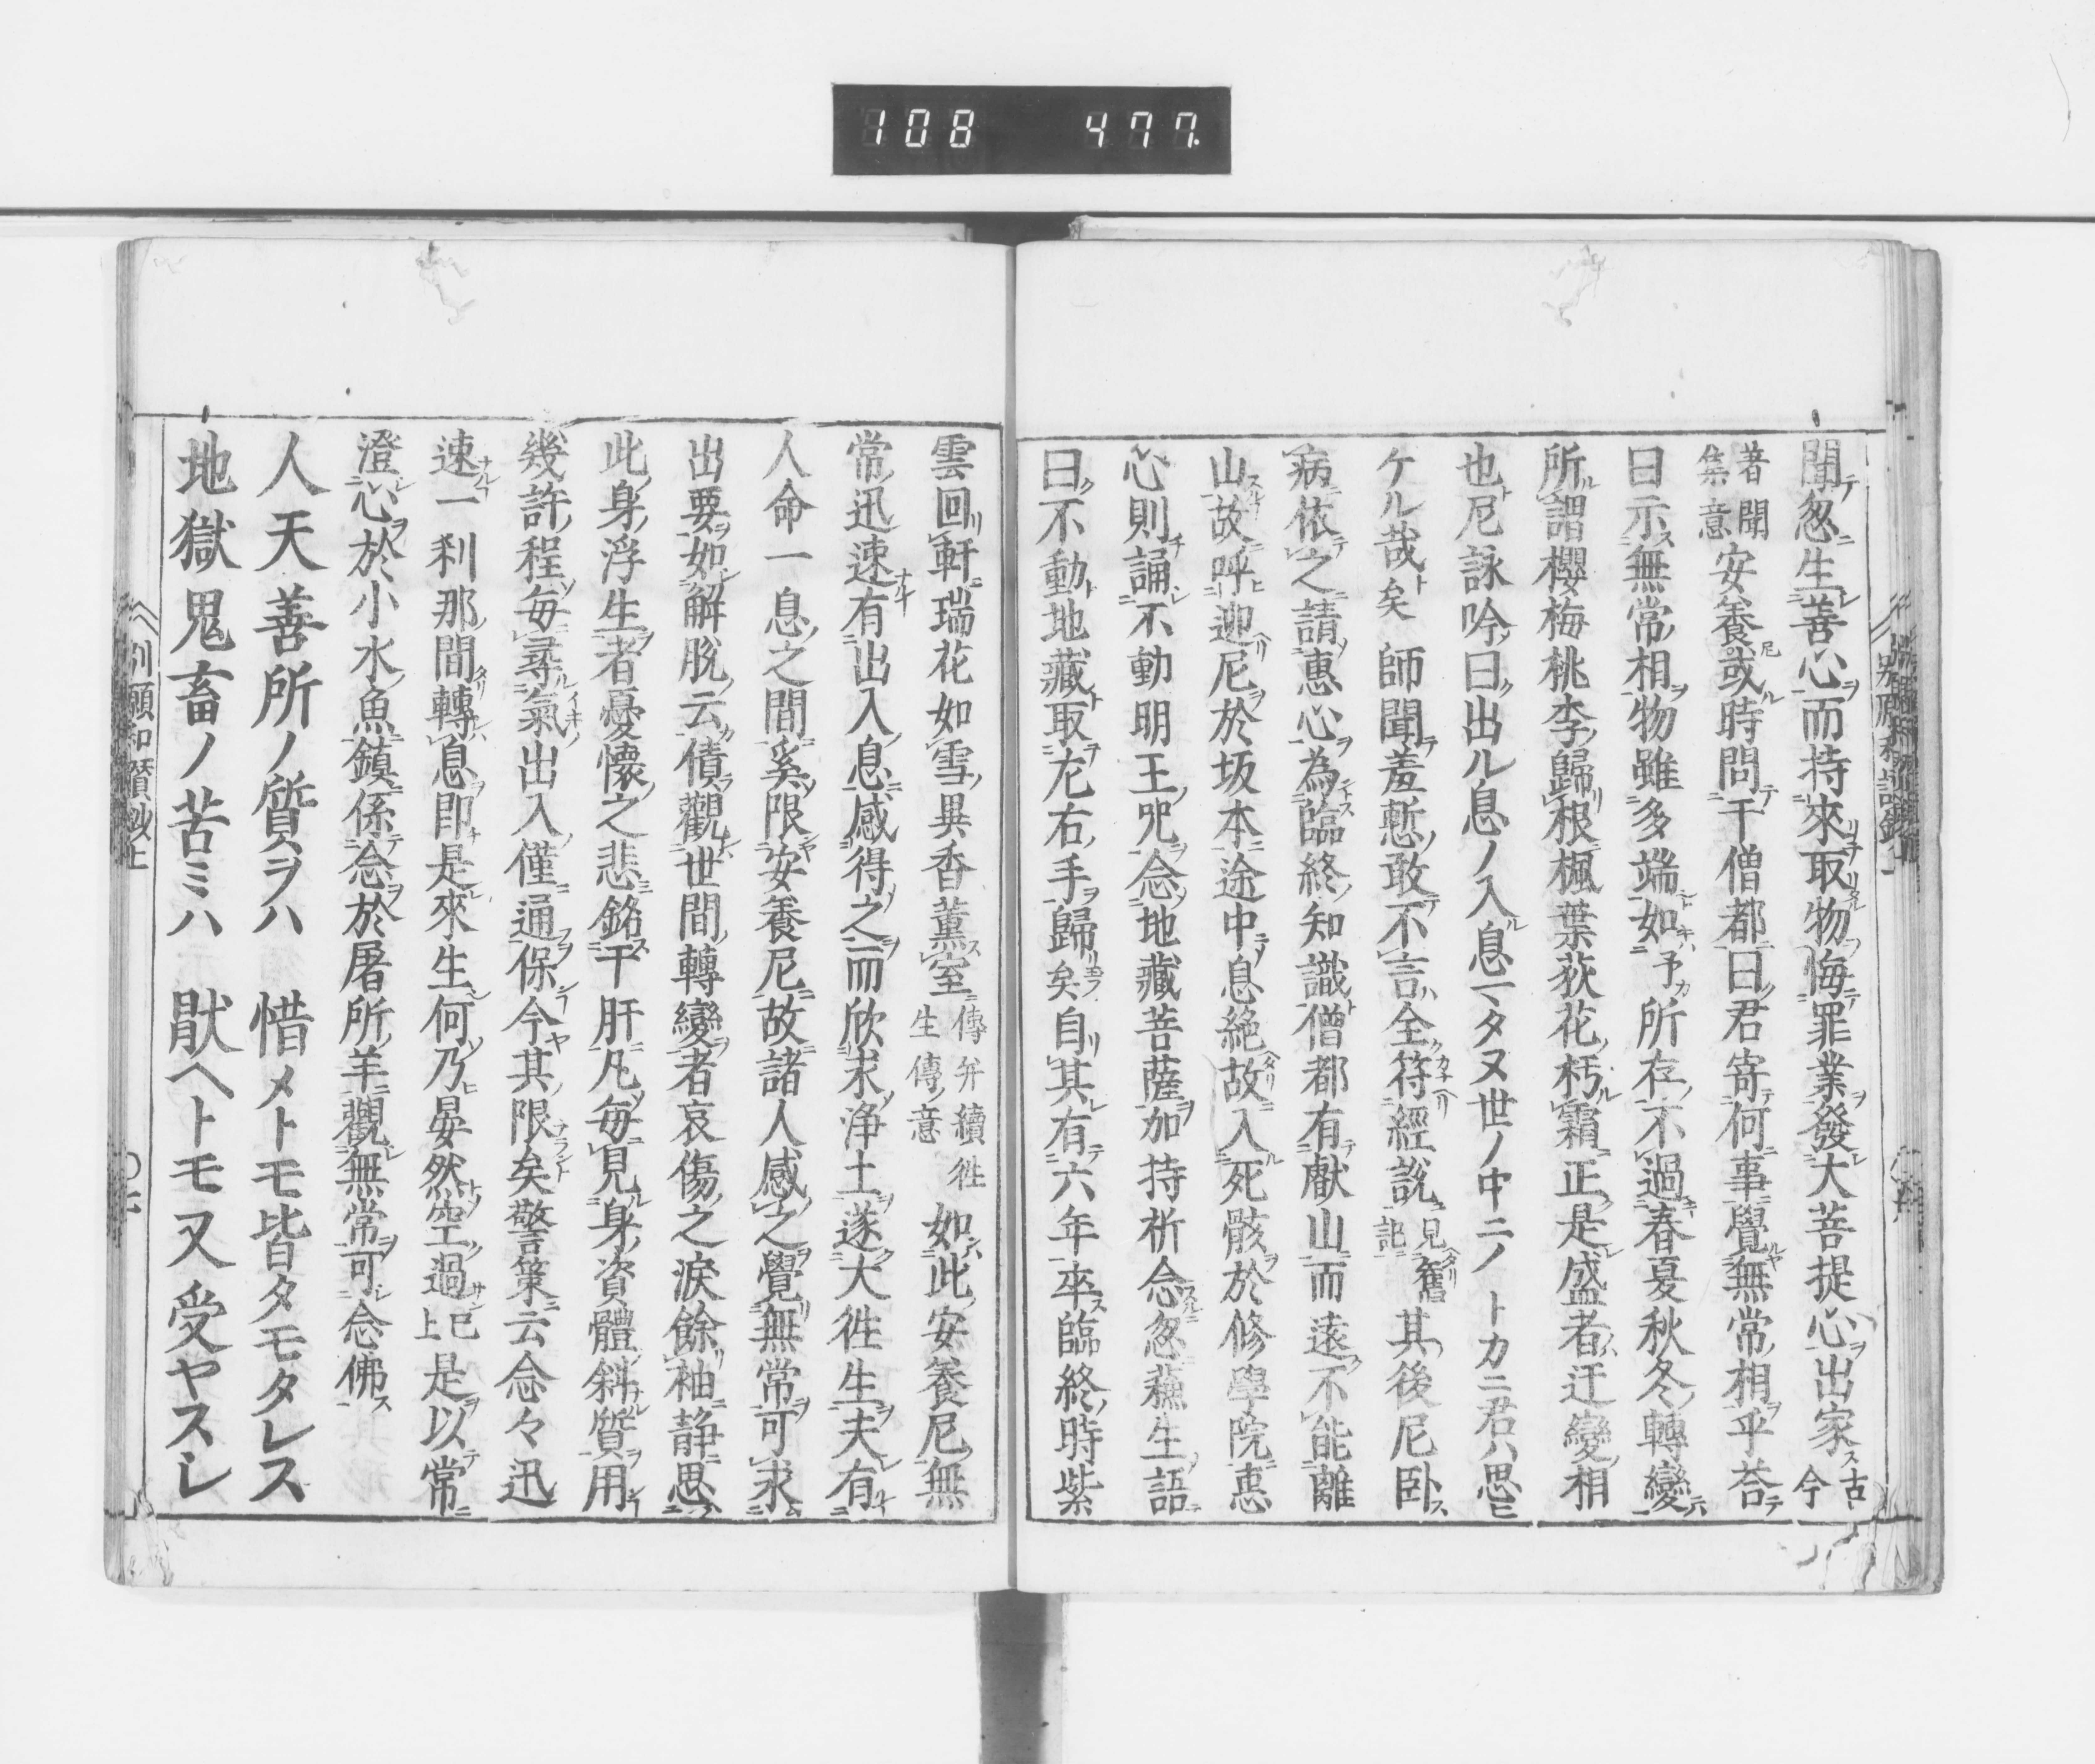 108 477
聞忽生善心而持來取物悔罪業發大菩提心出家古今
著聞集意安養尼或時問干僧都曰君寄何事覺無常相乎荅
曰示無常相物雖多端如予所存不過春夏秋冬轉變
所謂櫻梅桃李歸根楓葉荻花朽霜正是盛者迁變相
也尼詠吟曰出ル息ノ入息マタヌ世ノ中ニノトカニ君ハ思ヒ
ケル哉矣師聞羞慙敢不言全符經説見舊記其後尼卧
病依之請惠心為臨終知識僧都有獻山而遠不能離
山故呼迎尼於坂本途中息絶故入死骸於修學院惠
心則誦不動明王呪念地藏菩薩加持祈念忽蘓生語
曰不動地藏取左右手歸矣自其有六年卒臨終時紫
雲回軒瑞花如雪異香薫室傳并續徃生傳意如此安養尼無
常迅速有出入息感得之而欣求浄土遂大徃生夫有
人命一息之間奚限安養尼故諸人感之覺無常可求
出要如解脱云債觀世間轉變者哀傷之涙餘袖静思
此身浮生者憂懷之悲銘干肝凡毎見身資體斜質用
幾許程毎尋氣出入僅通保今其限矣警策云念々迅
速一刹那間轉息即是來生何乃晏然空過已上是以常
澄心於小水魚鎮係念於屠所羊觀無常可念佛
人天善所ノ質ヲハ 惜メトモ皆タモタレス
地獄鬼畜ノ苦ミハ 猒ヘトモ又受ヤスシ
別願和讃鈔上